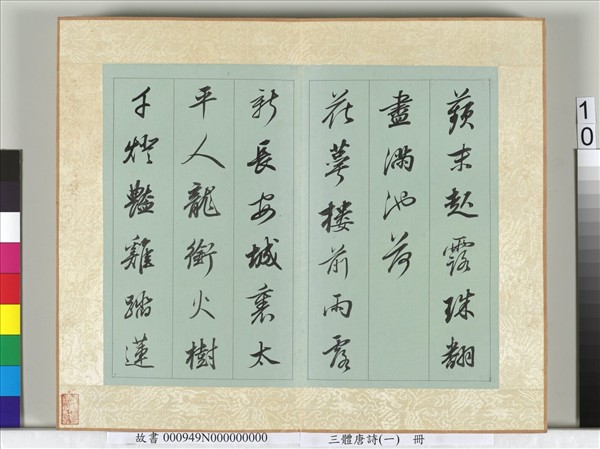 蘋末起露珠翻
盡滿池荷
花萼樓前雨露
新長安城裏太
平人龍銜火樹
千燈豔雞踏蓮
故書 000949N000000000
三體唐詩(一) 冊
10